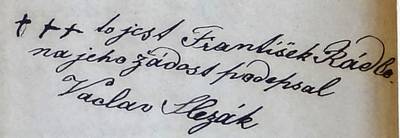 +++ to jest František Rádlo.
na jeho žádost podepsal
Vaclav Slezák